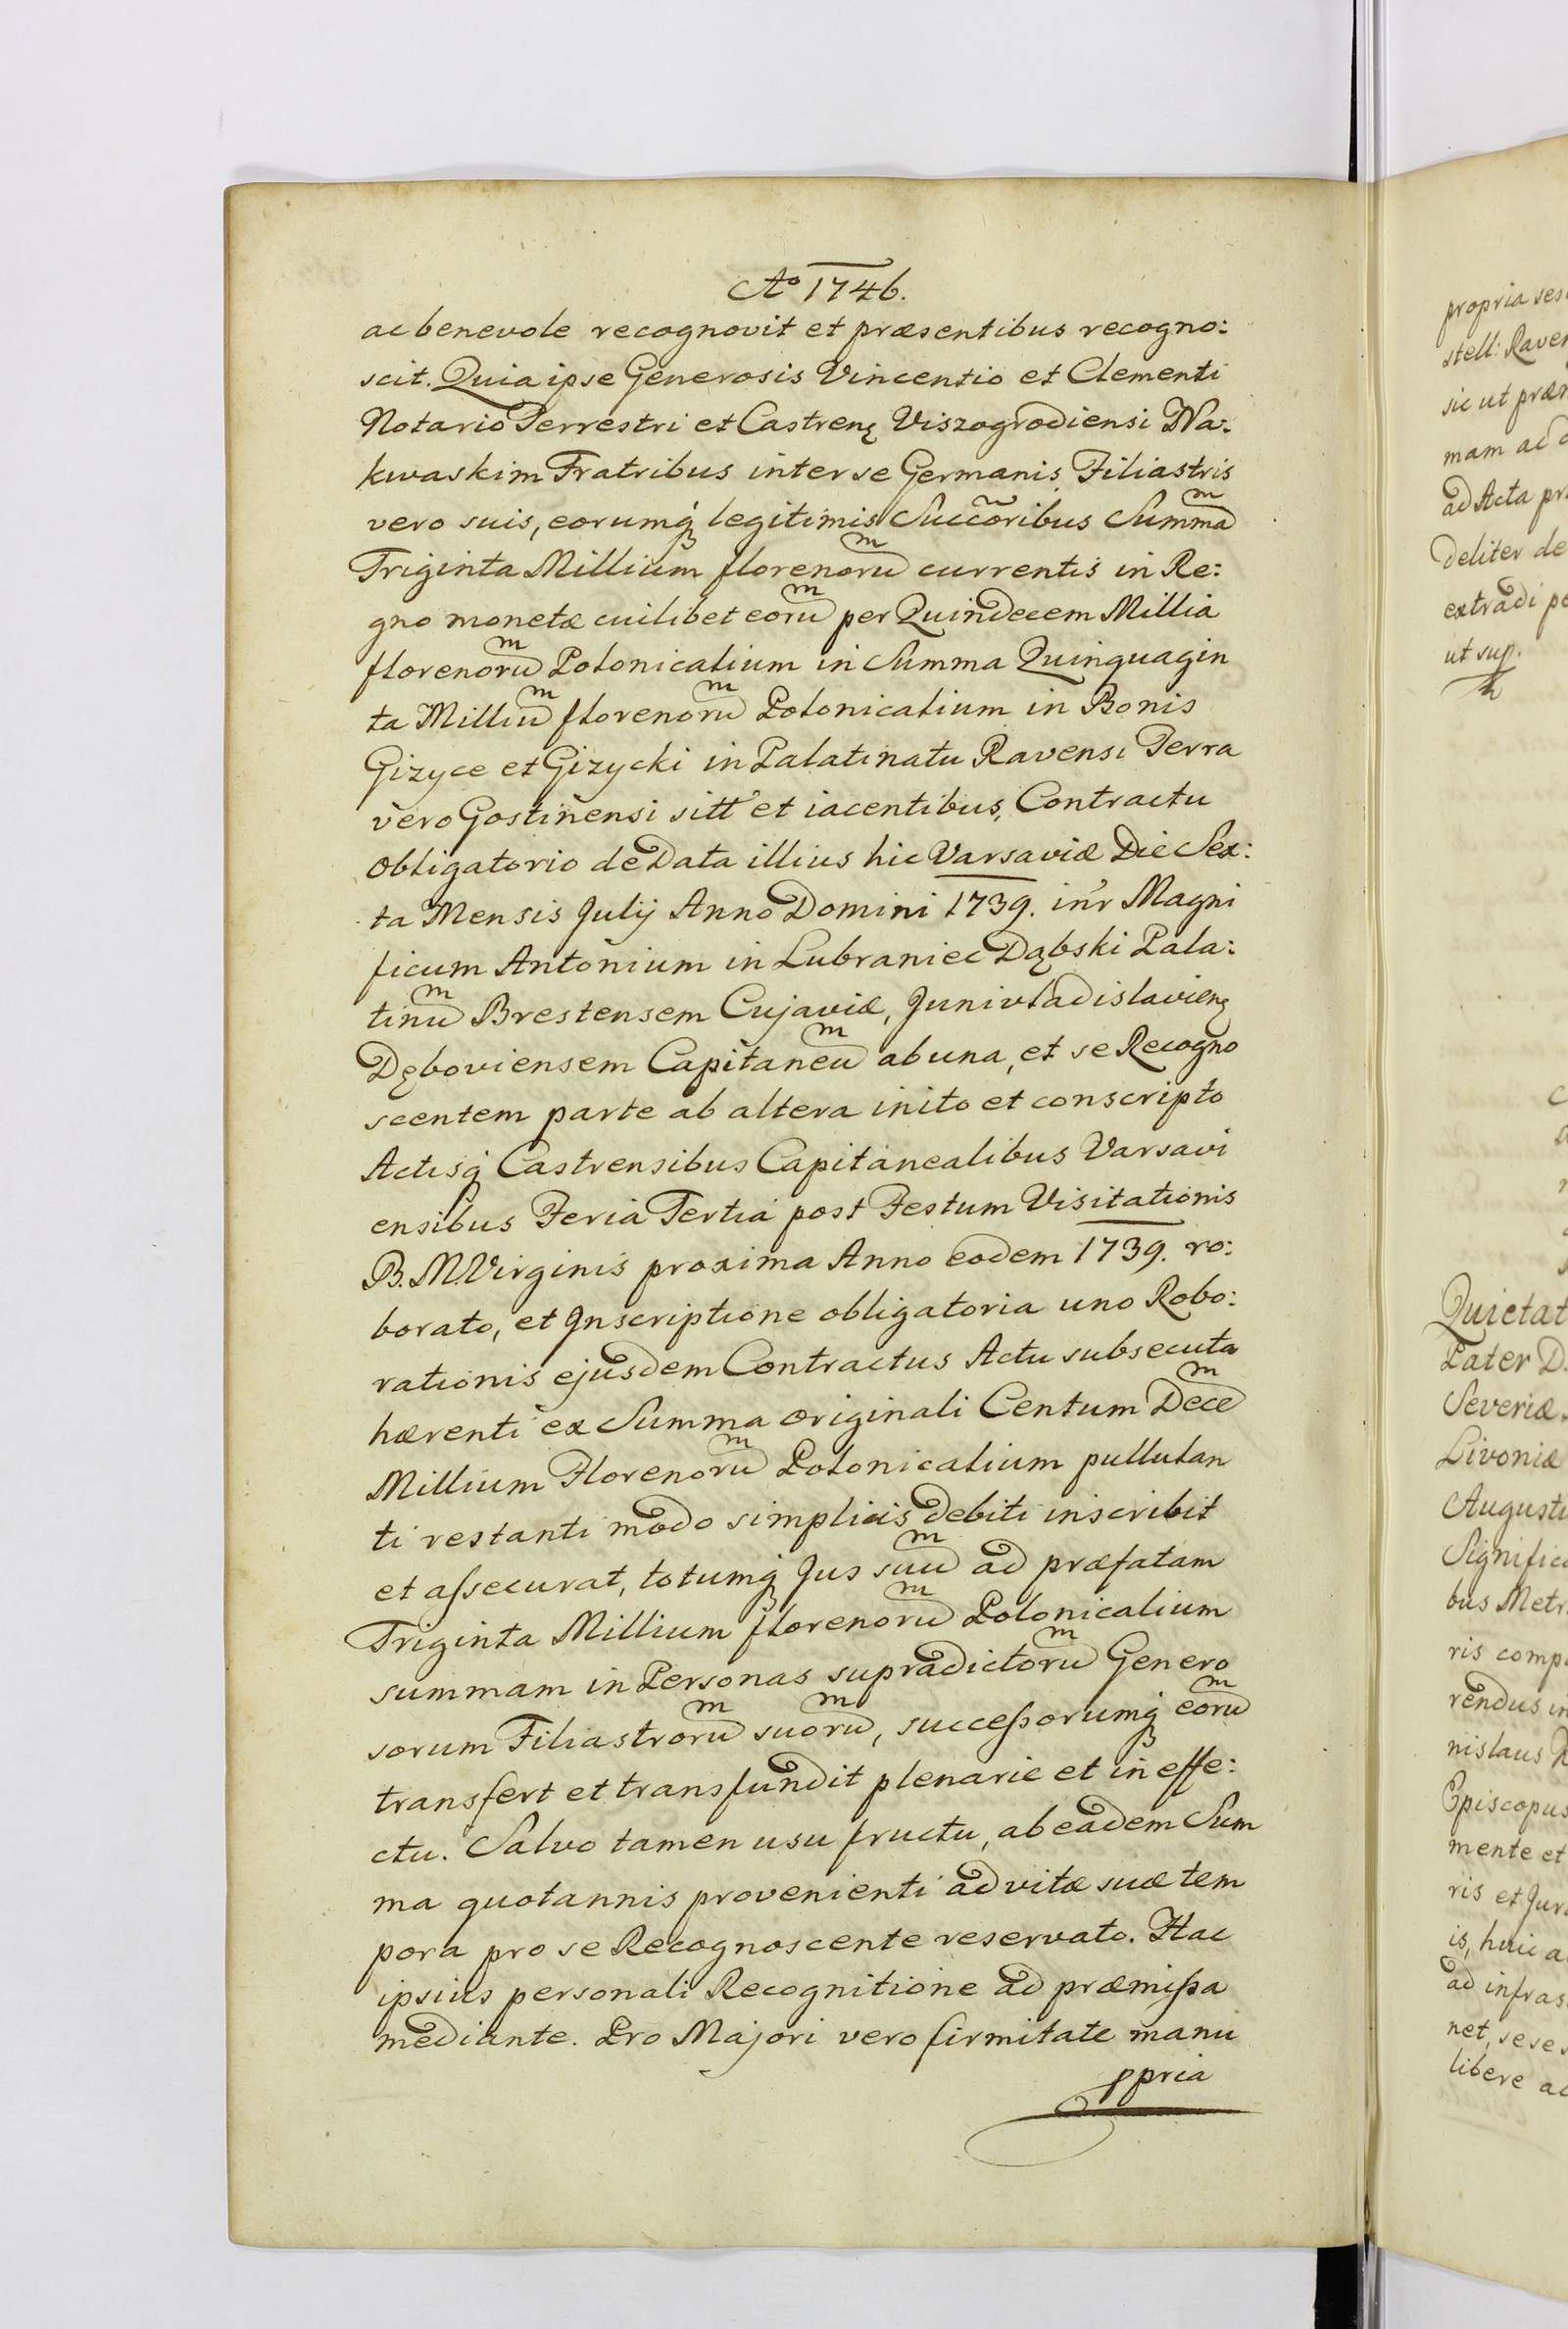 Aº 1746.
ac benevole recognovit et præsentibus recogno:
scit. Quia ipse Generosis Vincentio et Clementi
Notario Terrestri et Castrenę Viszogrodiensi Na:
kwaskim Fratribus inter se Germanis, Filiastris
vero suis, eorumq̨ legitimis Succ̃oribus Summaᵐ
Triginta Millium florenoruᵐ currentis in Re:
gno monetæ cuilibet eoruᵐ per Quindecem Millia
florenoruᵐ Polonicalium in Summa Quinquagin
ta Milliuᵐ florenoruᵐ Polonicalium in Bonis
Gizyce et Gizycki in Palatinatu Ravensi Terra
vero Gostinensi sitt' et iacentibus, Contractu
obligatorio de Data illius hic Varsaviæ Die Sex:
ta Mensis Julij Anno Domini 1739. int'r Magni
ficum Antonium in Lubraniec Dąbski Pala:
tinuᵐ Brestensem Cujaviæ, Junivladislavienę
Dęboviensem Capitaneuᵐ ab una, et se Recogno
scentem parte ab altera inito et conscripto
Actisq̨ Castrensibus Capitanealibus Varsavi
ensibus Feria Tertia post Festum Visitationis
B. M. Virginis proxima Anno eodem 1739. ro:
borato, et Inscriptione obligatoria uno Robo:
rationis ejusdem Contractus Actu subsecuta
hærenti ex Summa originali Centum Deceᵐ
Millium Florenoruᵐ Polonicalium pullulan
ti restanti modo simplicis debiti inscribit
et assecurat, totumq̨ Jus suuᵐ ad præfatam
Triginta Millium florenoruᵐ Polonicalium
summam in Personas supradictoruᵐ Genero
sorum Filiastroruᵐ suoruᵐ, successorumq̨ eoruᵐ
transfert et transfundit plenarie et in effe:
ctu. Salvo tamen usu fructu, ab eadem Sum
ma quotannis provenienti ad vitæ suæ tem
pora pro se Recognoscente reservato. Hac
ipsius personali Recognitione ad præmissa
mediante. Pro Majori vero firmitate manu
ppria
propria
stell: Raven
sic ut præm
mam ac
ad Acta
deliter de
extradi
ut sup.
Quietat
Pater D.
Severiæ
Livoniæ
Augusti
Significa
bus Metr
ris comp
rendus in
nislaus
Episcopus
mente et
ris et Jur
is, huic a
ad infras
net, sese
libere ac